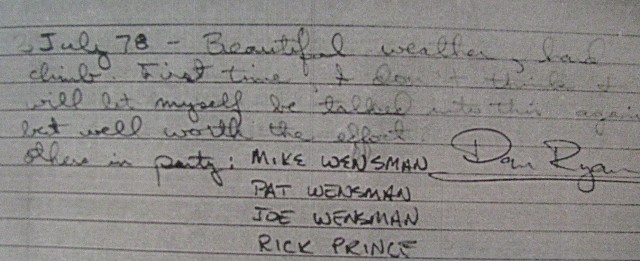 2 July 78 - Beautiful weather, had
climb. First time, & don't think I
will let myself be talked into this again
but well worth the effort.
others in party: MIKE WENSMAN Dan Ryan
PAT WENSMAN
JOE WENSMAN
RICK PRINCE